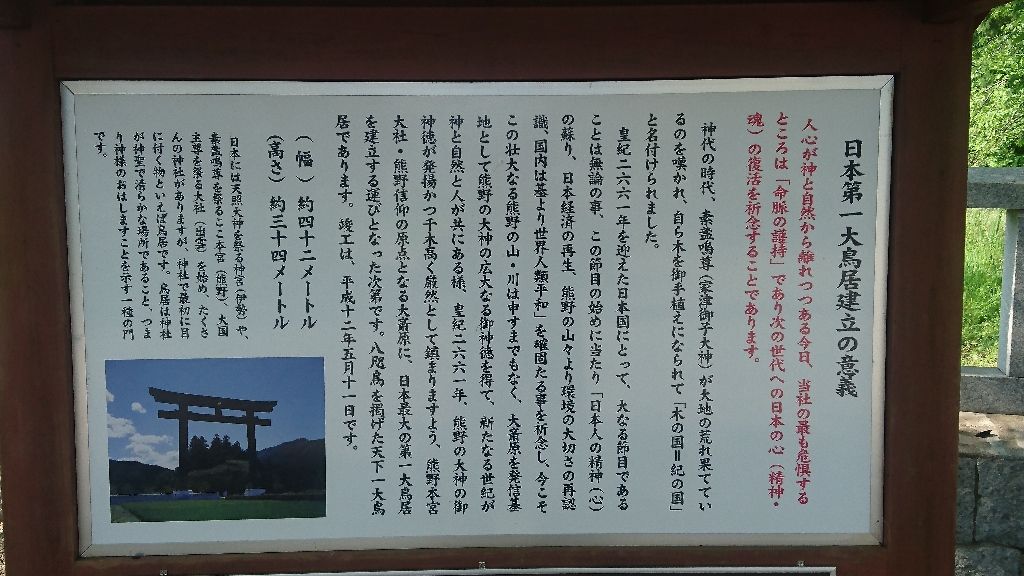 日本第一大鳥居建立の意義
人心が神と自然から離れつつある今日、当社の最も危惧する
ところは「命脈の護持」であり次の世代への日本の心（精神・
魂）の復活を祈念することであります。
神代の時代、素盞鳴尊（家津御子大神）が大地の荒れ果ててい
るのを嘆かれ、自ら木を御手植えになられて「木の国＝紀の国」
と名付けられました。
皇紀二六六一年を迎えた日本国にとって、大なる節目である
ことは無論の事、この節目の始めに当たり「日本人の精神（心）
の蘇り、日本経済の再生、熊野の山々より環境の大切さの再認
識、国内は基より世界人類平和」を確固たる事を祈念し、今こそ
この壮大なる熊野の山・川は申すまでもなく、大斎原を発信基
地として熊野の大神の広大なる御神徳を得て、新たなる世紀が
神と自然と人が共にある様、皇紀二六六一年、熊野の大神の御
神徳が発揚かつ千木高く厳然として鎮まりますよう、熊野本宮
大社・熊野信仰の原点となる大斎原に、日本最大の第一大鳥居
を建立する運びとなった次第です。八咫烏を掲げた天下一大鳥
居であります。竣工は、平成十二年五月十一日です。
（幅）約四十二メートル
（高さ）約三十四メートル
日本には天照大神を祭る神宮（伊勢）や、
素盞鳴尊を祭るここ本宮（熊野）、大国
主尊を祭る大社（出雲）を始め、たくさ
んの神社がありますが、神社で最初に目
に付く物といえば鳥居です。鳥居は神社
が神聖で清らかな場所であること、つま
り神様のおはしますことを示す一種の門
です。